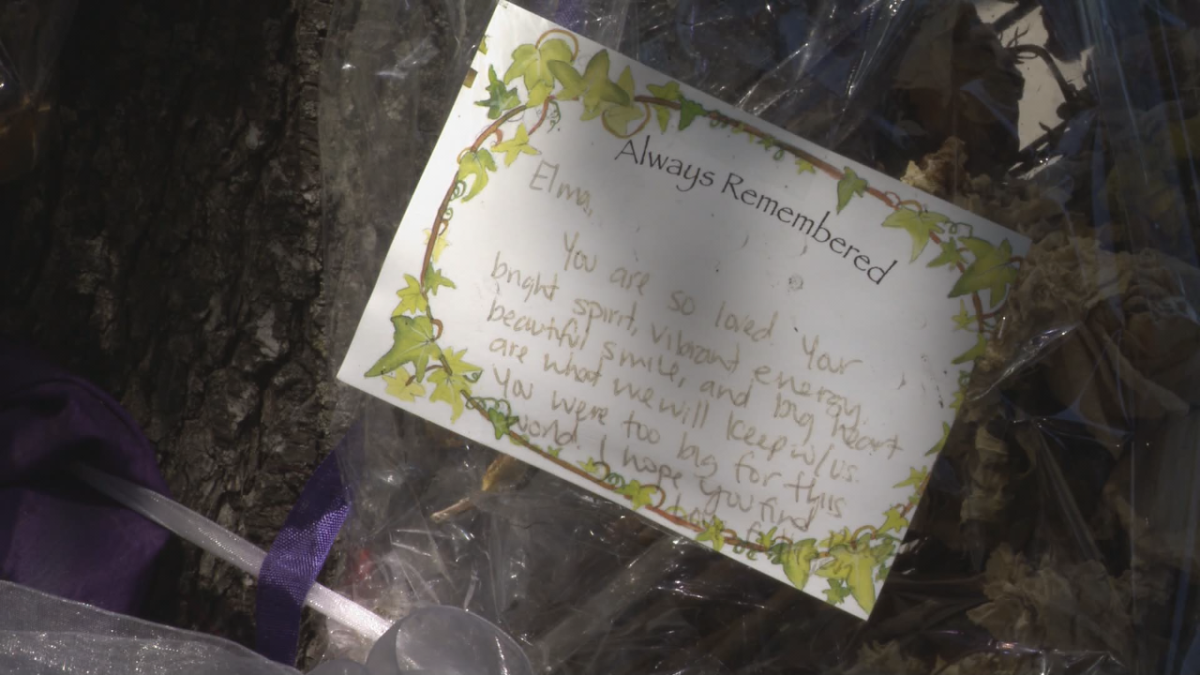 Always Remembered
Elma,
You are so loved. Your
bright spirit, vibrant energy,
beautiful smile, and big heart
are what we will keep w/us.
You were too big for this
world. I hope you find